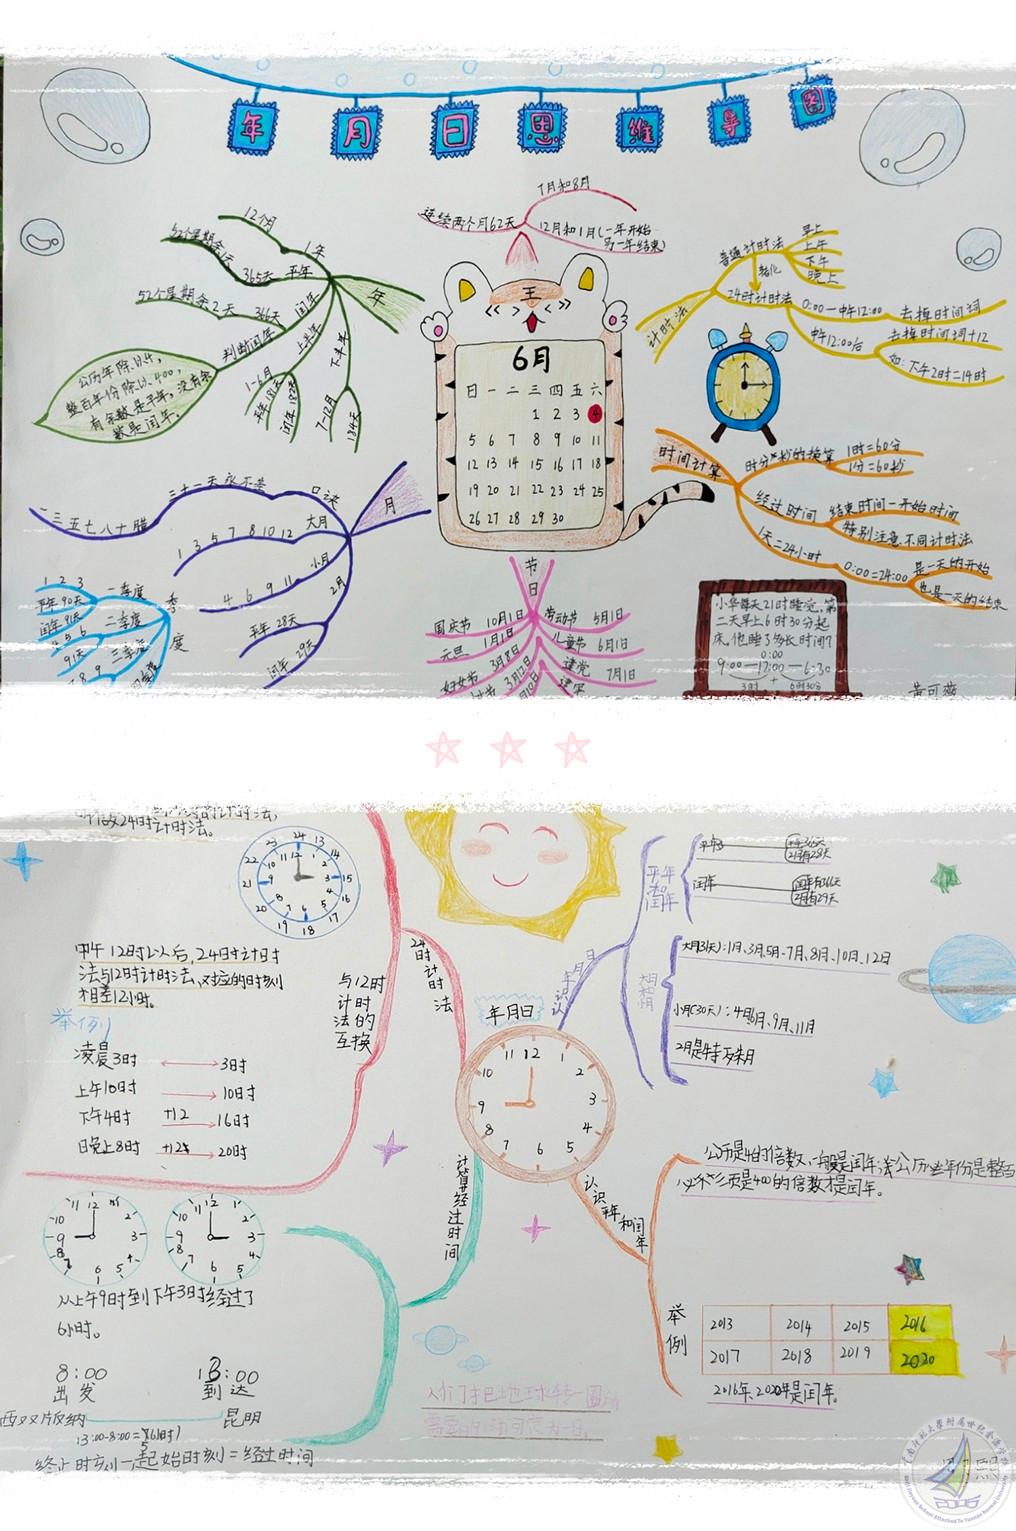 年月日思维导图
连续两个月62天
7月和8月
12月和1月(一年开始
另一年结束)
年
1年
12个月
平年
365天
52个星期余1天
闰年
366天
52个星期余2天
判断闰年
公历年除以4,
整百年份除以400,
有余数是平年,没有余
数是闰年。
上半年
1-6月
平年181天
闰年182天
下半年
7-12月
184天
月
口决
三十一天永不差
一三五七八十腊
大月
1 3 5 7 8 10 12
小月
4 6 9 11
2月
平年 28天
闰年 29天
季度
一季度
1 2 3
平年90天
闰年91天
二季度
5 6
91天
三季度
王
6月
日 一 二 三 四 五 六
1 2 3 4
5 6 7 8 9 10 11
12 13 14 15 16 17 18
19 20 21 22 23 24 25
26 27 28 29 30
计时法
普通计时法
早上
上午
下午
晚上
转化
24时计时法
0:00—中午12:00
去掉时间词
中午12:00后
去掉时间词+12
如:下午2时=14时
时间计算
时分秒的换算
1时=60分
1分=60秒
经过时间
结束时间-开始时间
特别注意不同计时法
1天=24小时
0:00=24:00
是一天的开始
也是一天的结束
节日
国庆节 10月1日
元旦 1月1日
妇女节 3月8日
3月12日
劳动节 5月1日
儿童节 6月1日
建党 7月1日
建军
小华每天21时睡觉,第
二天早上6时30分起
床,他睡了多长时间?
0:00
9:00—12:00—6:30
3时 + 6时30分
24时计时法。
24 13 14 15 16 17 18 19 20 21 22 23
12 1 2 3 4 5 6 7 8 9 10 11
中午12时以后,24时计时
法与12时计时法,对应的时刻
相差12小时。
举例
凌晨3时 3时
上午10时 10时
下午4时 +12 16时
日晚上8时 +12 20时
与12时
计时
法的
互换
24时计时法
年月日
12 1 2 3 4 5 6 7 8 9 10 11
认识年月日
平年和闰年
平年
2月有28天
闰年
闰年有366天
2月有29天
大月(31天):1月、3月、5月、7月、8月、10月、12日
小月(30天):4月6月、9月、11月
2月是特殊月
认识平年和闰年
公历是4的倍数,一般是闰年,
必须是400的倍数才是闰年。
举例
2013 2014 2015 2016
2017 2018 2019 2020
2016年、2020年是闰年。
计算经过时间
从上午9时到下午3时经过了
6小时。
8:00 13:00
出发 到达
西双版纳 昆明
终止时刻-起始时刻=经过时间
人们把地球转一圈所
需要的时间定为一日。